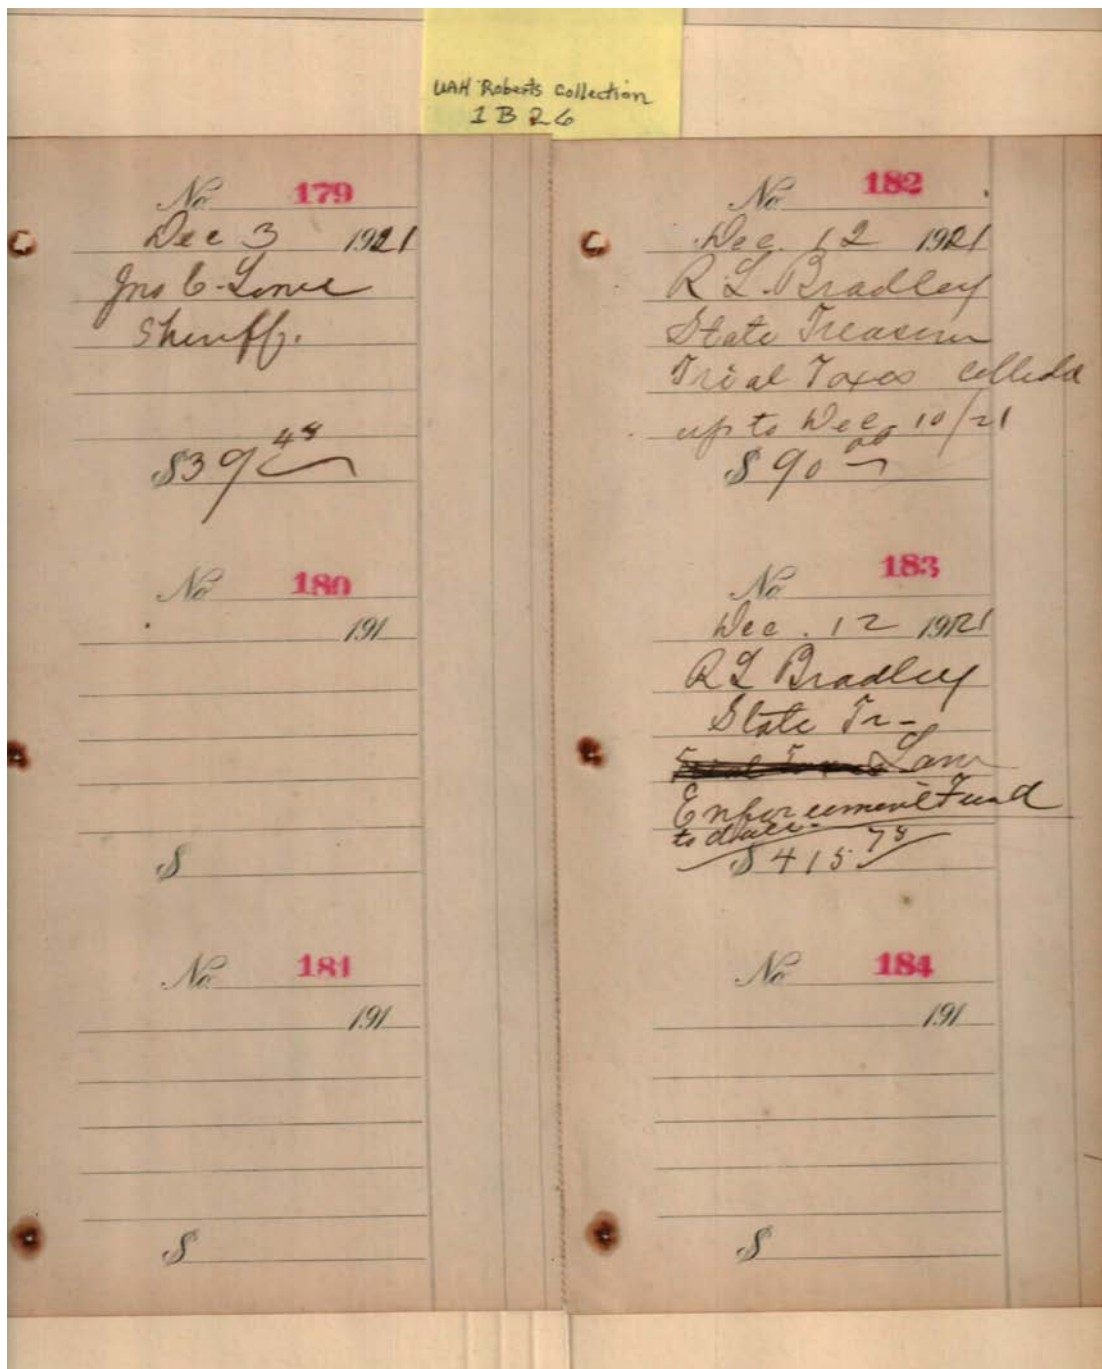 UAH Roberts Collection
1 B 26
No 179
Dec 3 1921
Jno C.
Sheriff.
$39 48
No 180
191
$
No 181
191
$
No 182
Dec. 12 1921
R L. Bradley
State Treasurer
Trial Taxes collected
up to Dec 10/21
$90 00
No 183
Dec. 12 1921
R L Bradley
State Tr-
Law
Enforcement Fund
to date.
$415 78
No 184
191
$